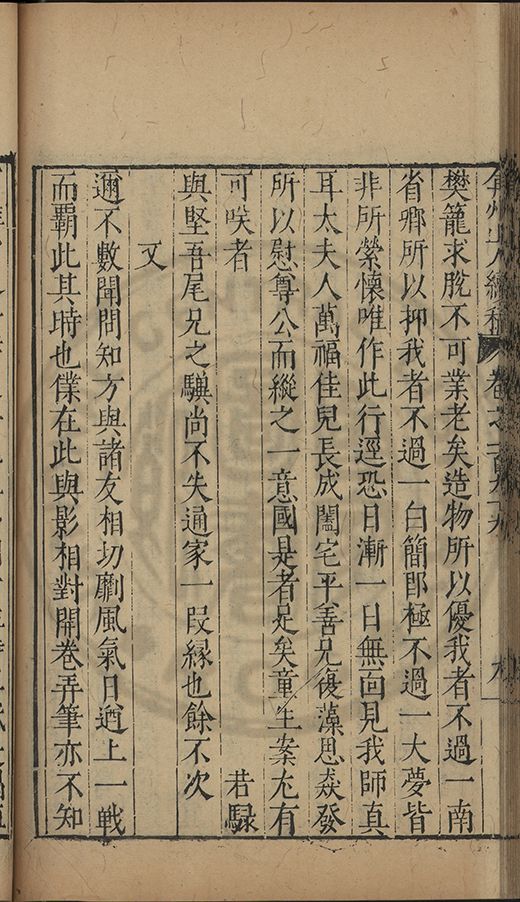 弇州山人續稿 卷之一百九十九 九
樊籠求脫不可業老矣造物所以優我者不過一南
省鄉所以抑我者不過一白簡郎極不過一大夢皆
非所縈懷唯作此行逕恐日漸一日無面見我師真
耳太夫人萬福佳兒長成闔宅平善兄復藻思焱發
所以慰尊公而縱之一意國是者足矣童生案尢有
可咲者 若騄
與堅吾尾兄之驥尚不失通家一段緣也餘不次
又
邇不數聞問知方與諸友相切劘風氣日遒上一戰
而覇此其時也僕在此與影相對開卷弄筆亦不知